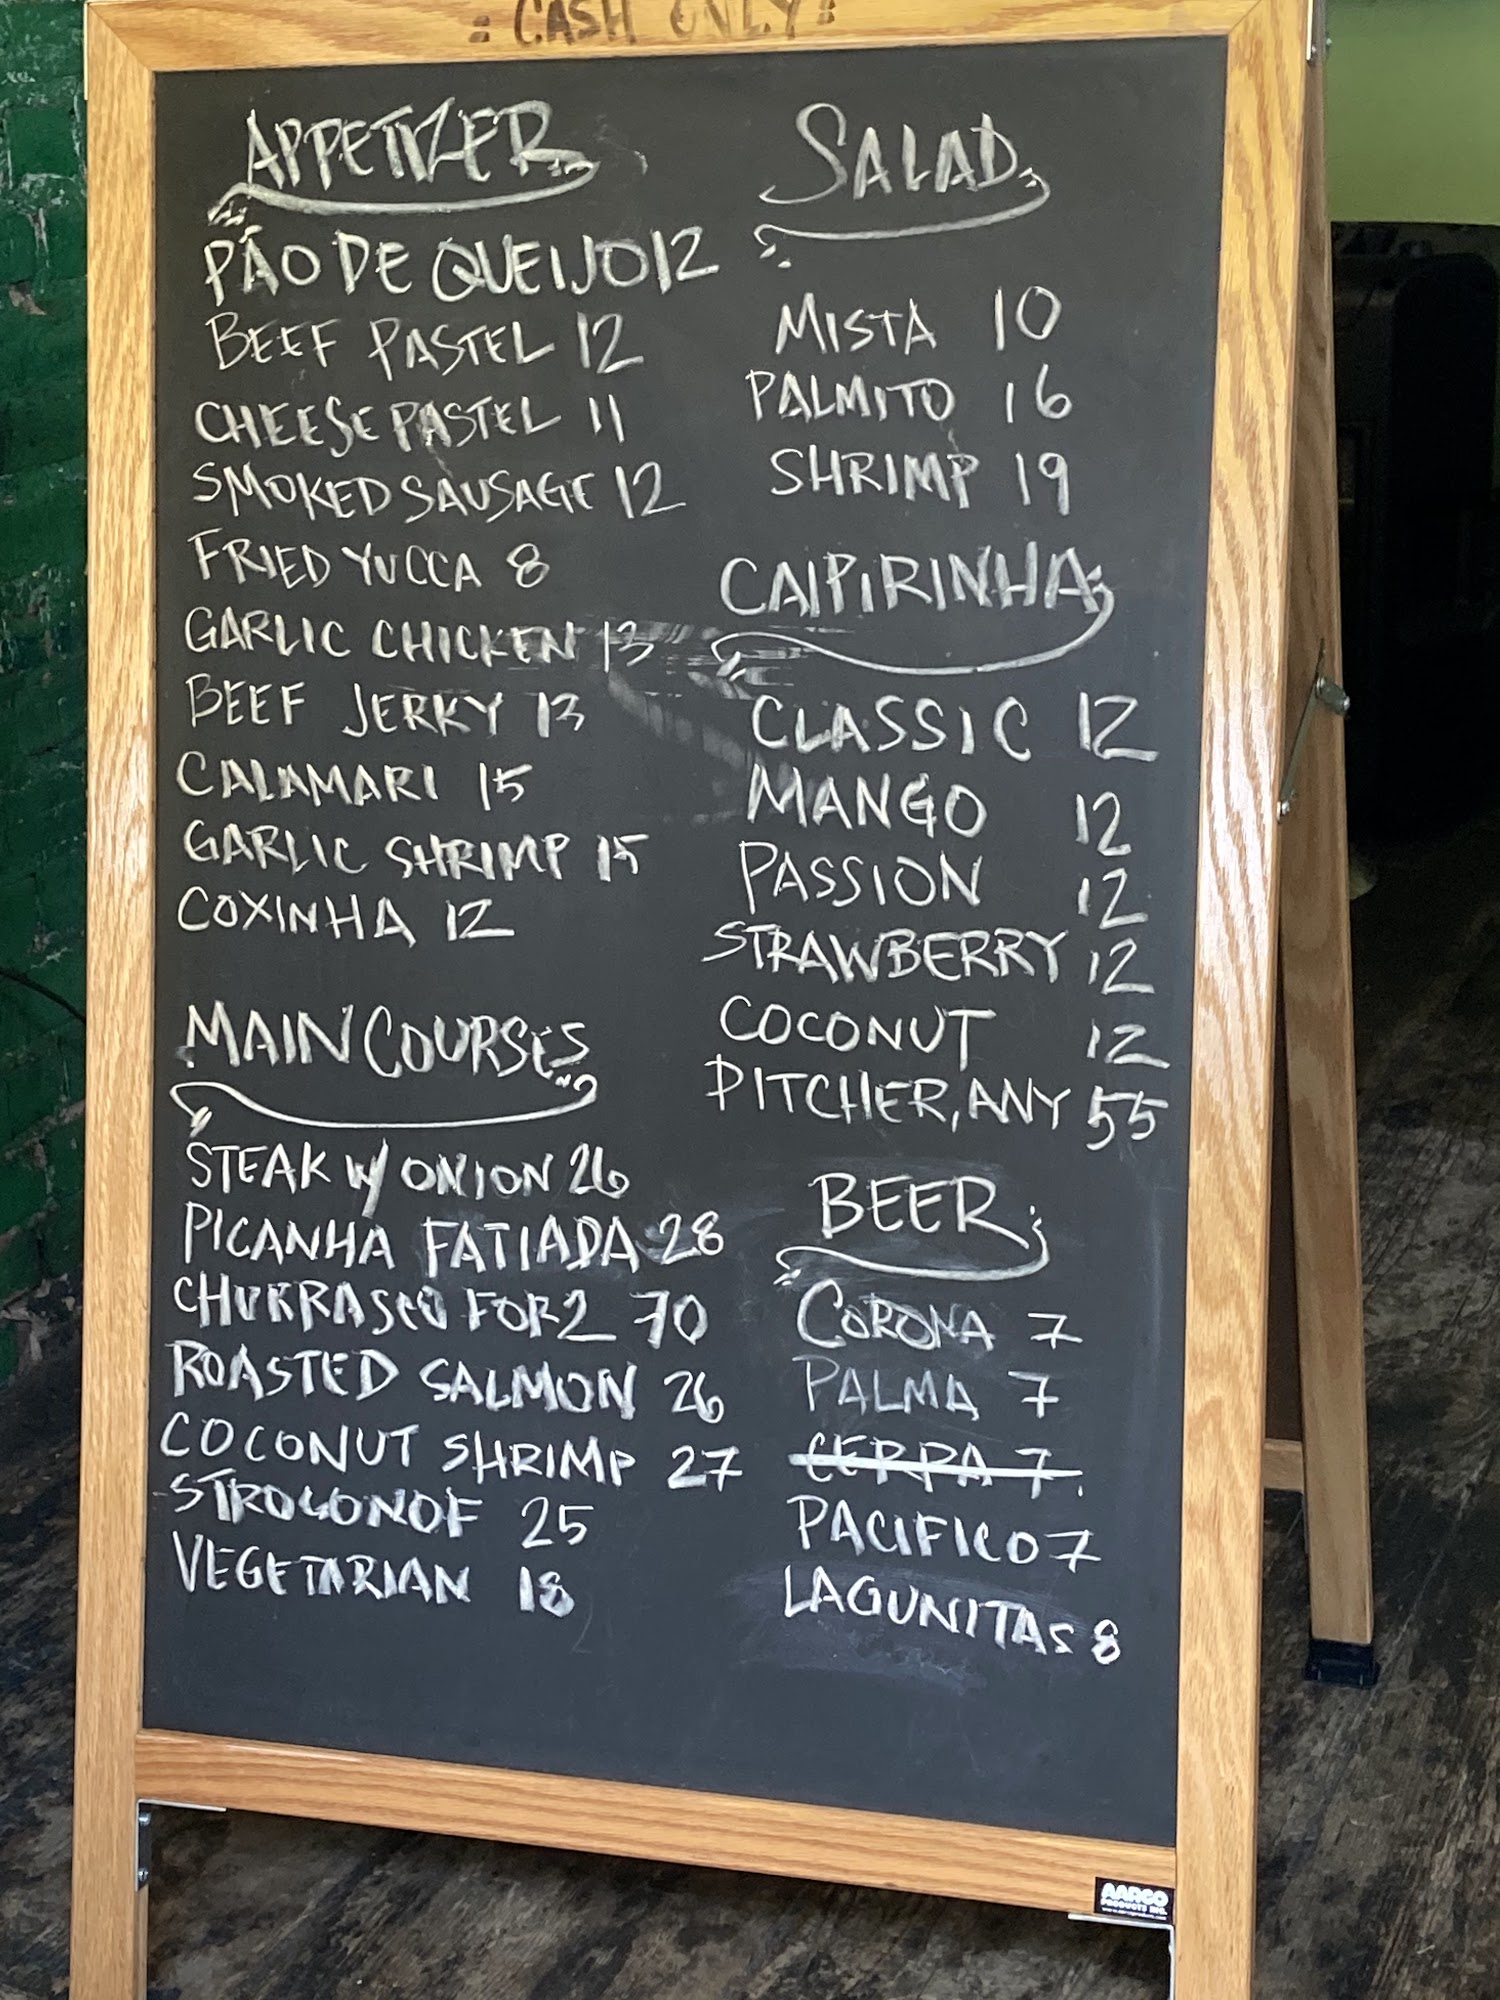 : CASH ONLY :
APPETIZER
PÃO DE QUEIJO 12
BEEF PASTEL 12
CHEESE PASTEL 11
SMOKED SAUSAGE 12
FRIED YUCCA 8
GARLIC CHICKEN 13
BEEF JERKY 13
CALAMARI 15
GARLIC SHRIMP 15
COXINHA 12
MAIN COURSES
STEAK W/ ONION 26
PICANHA FATIADA 28
CHURRASCO FOR 2 70
ROASTED SALMON 26
COCONUT SHRIMP 27
STROGONOF 25
VEGETARIAN 18
SALAD
MISTA 10
PALMITO 16
SHRIMP 19
CAIPIRINHA
CLASSIC 12
MANGO 12
PASSION 12
STRAWBERRY 12
COCONUT 12
PITCHER, ANY 55
BEER
CORONA 7
PALMA 7
CERPA 7
PACIFICO 7
LAGUNITAS 8
AARCO
PRODUCTS INC.